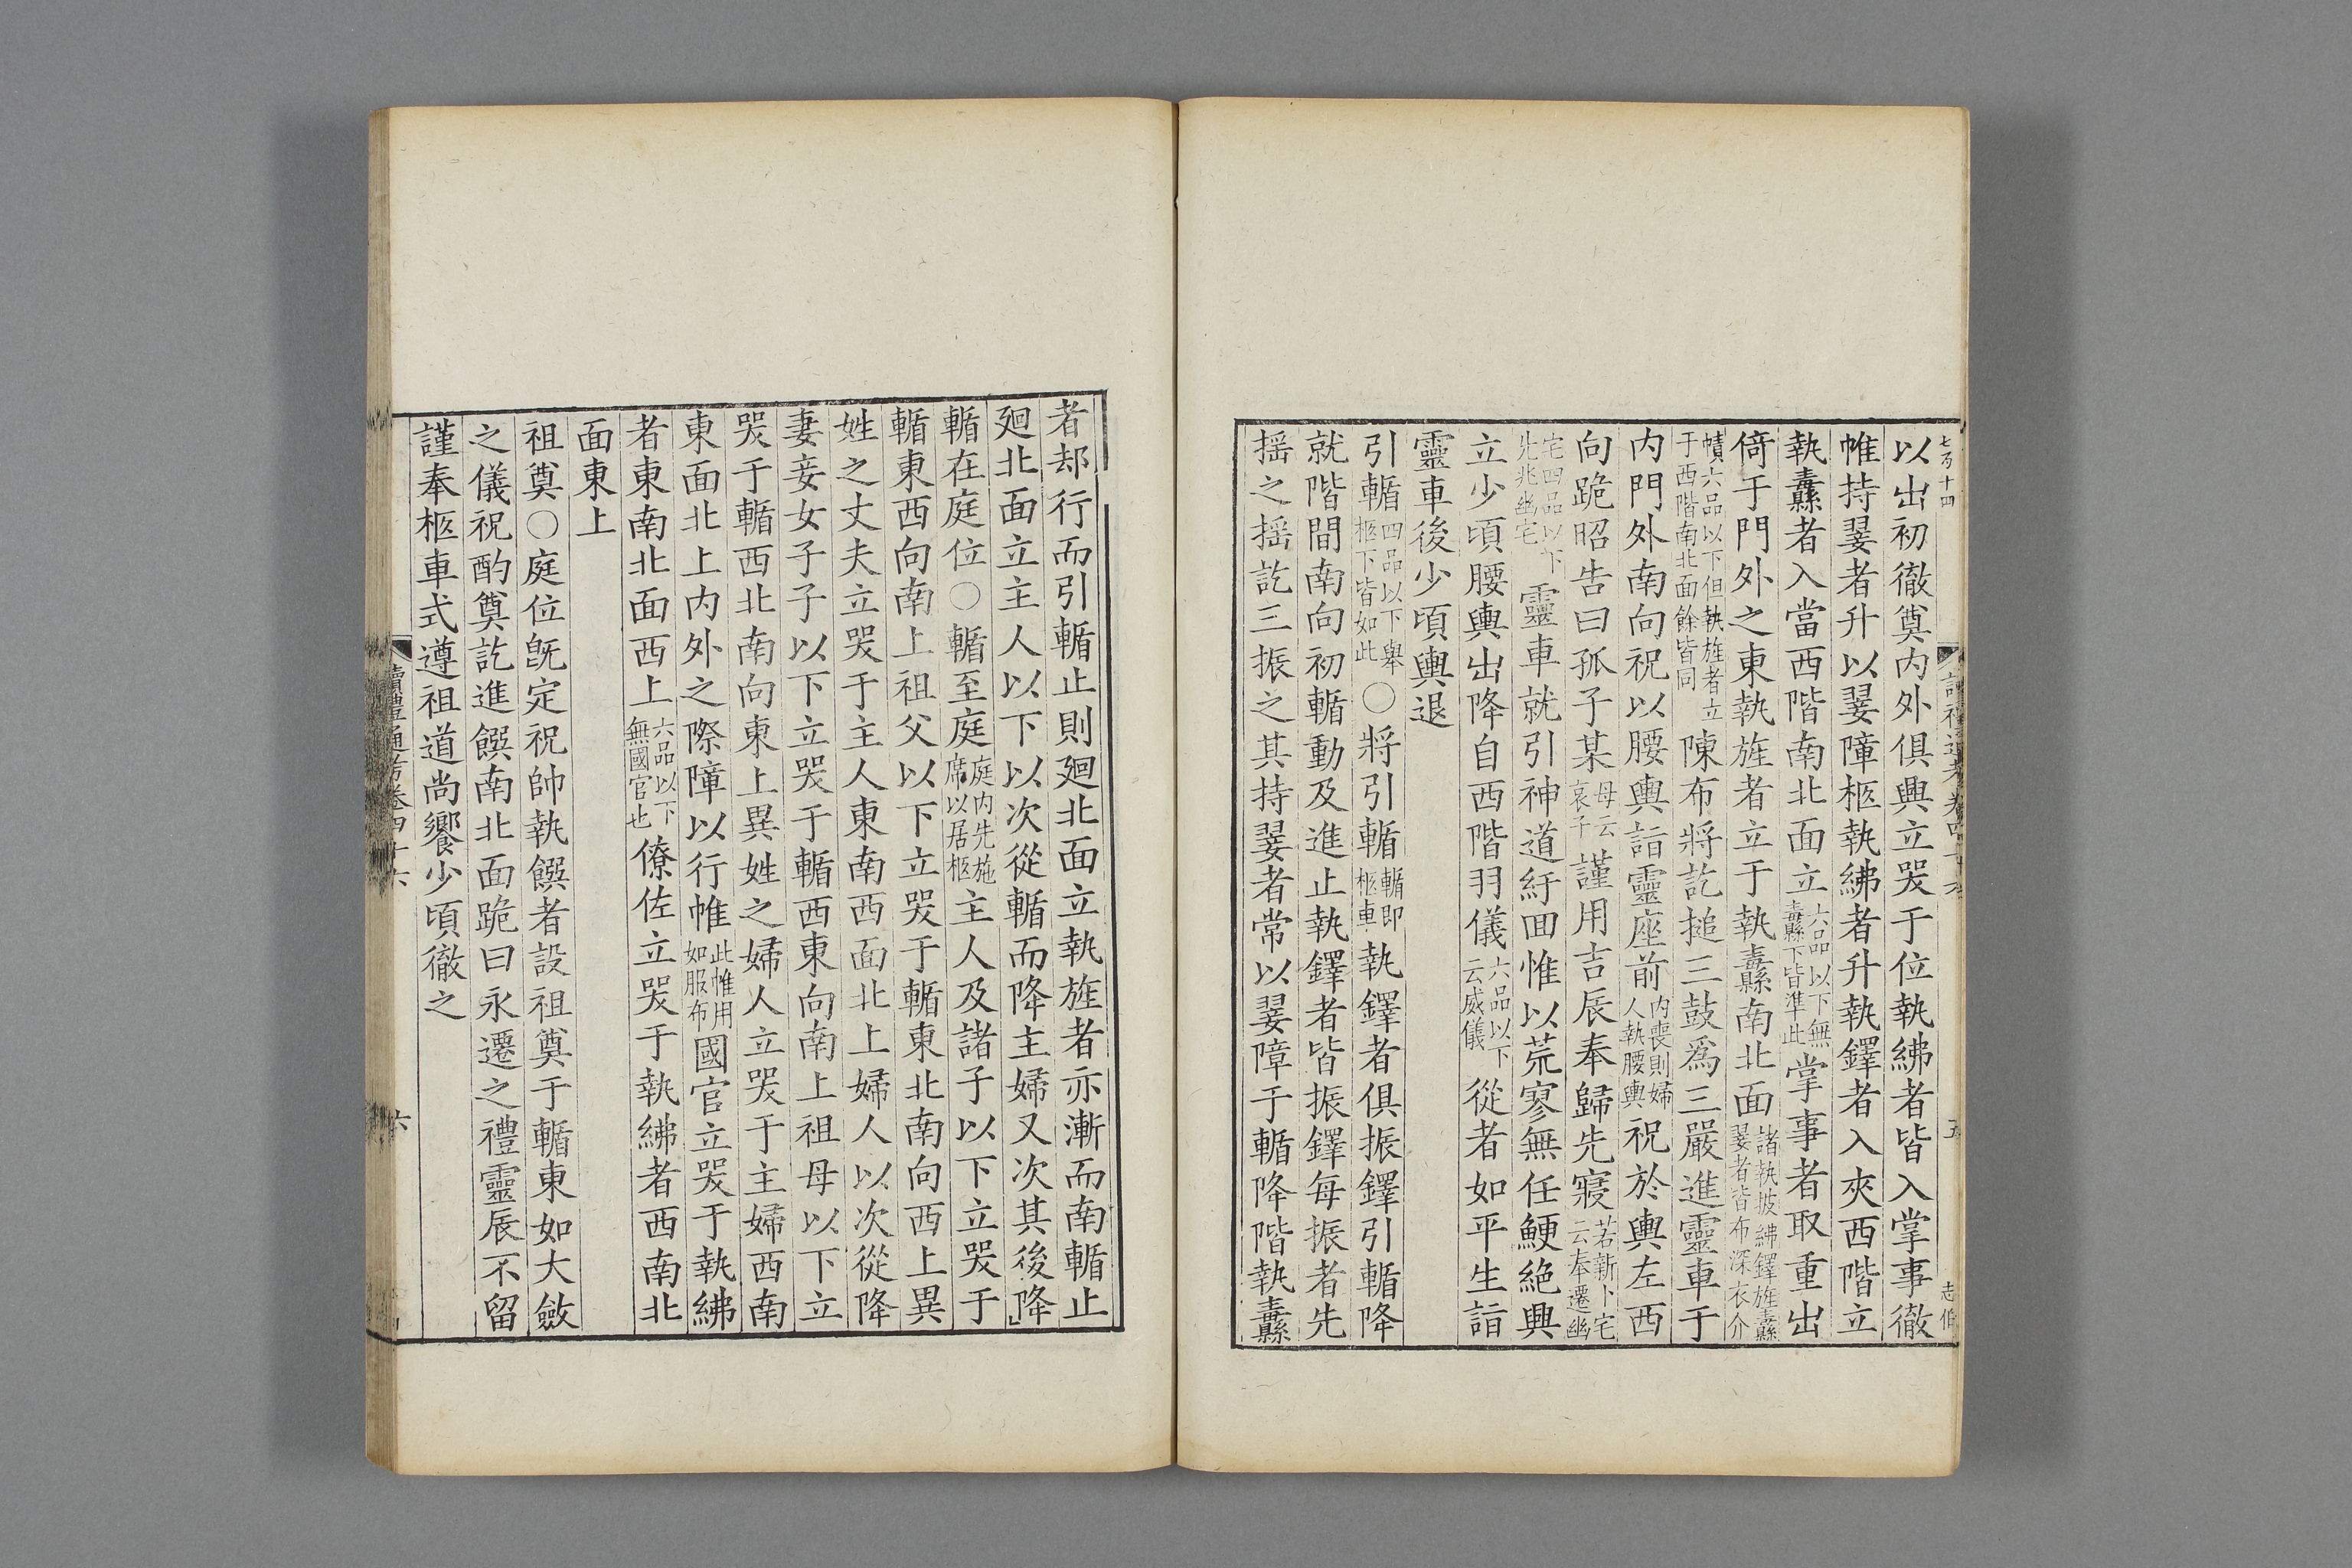 以出初徹奠内外俱興立哭于位執紼者皆入掌事徹
帷持翣者升以翣障柩執紼者升執鐸者入夾西階立
執纛者入當西階南北面立六品以下無纛下皆準此掌事者取重出
倚于門外之東執旌者立于執纛南北面諸執披紼鐸旌纛翣者皆布深衣介
幘六品以下但執旌者立于西階南北面餘皆同陳布將訖搥三鼓爲三嚴進靈車于
内門外南向祝以腰輿詣靈座前内喪則婦人執腰輿祝於輿左西
向跪昭告曰孤子某母云哀子謹用吉辰奉歸先寢若新卜宅云奉遷幽
宅四品以下先兆幽宅靈車就引神道紆回惟以荒寥無任鯁絶興
立少頃腰輿出降自西階羽儀六品以下云威儀從者如平生詣
靈車後少頃輿退
引輴四品以下舉柩下皆如此○將引輴輴即柩車執鐸者俱振鐸引輴降
就階間南向初輴動及進止執鐸者皆振鐸每振者先
搖之搖訖三振之其持翣者常以翣障于輴降階執纛
者却行而引輴止則廻北面立執旌者亦漸而南輴止
廻北面立主人以下以次從輴而降主婦又次其後降
輴在庭位○輴至庭庭内先施席以居柩主人及諸子以下立哭于
輴東西向南上祖父以下立哭于輴東北南向西上異
姓之丈夫立哭于主人東南西面北上婦人以次從降
妻妾女子子以下立哭于輴西東向南上祖母以下立
哭于輴西北南向東上異姓之婦人立哭于主婦西南
東面北上内外之際障以行帷此帷用如服布國官立哭于執紼
者東南北面西上六品以下無國官也僚佐立哭于執紼者西南北
面東上
祖奠○庭位旣定祝帥執饌者設祖奠于輴東如大斂
之儀祝酌奠訖進饌南北面跪曰永遷之禮靈辰不留
謹奉柩車式遵祖道尚饗少頃徹之
讀禮通考卷四十六
六